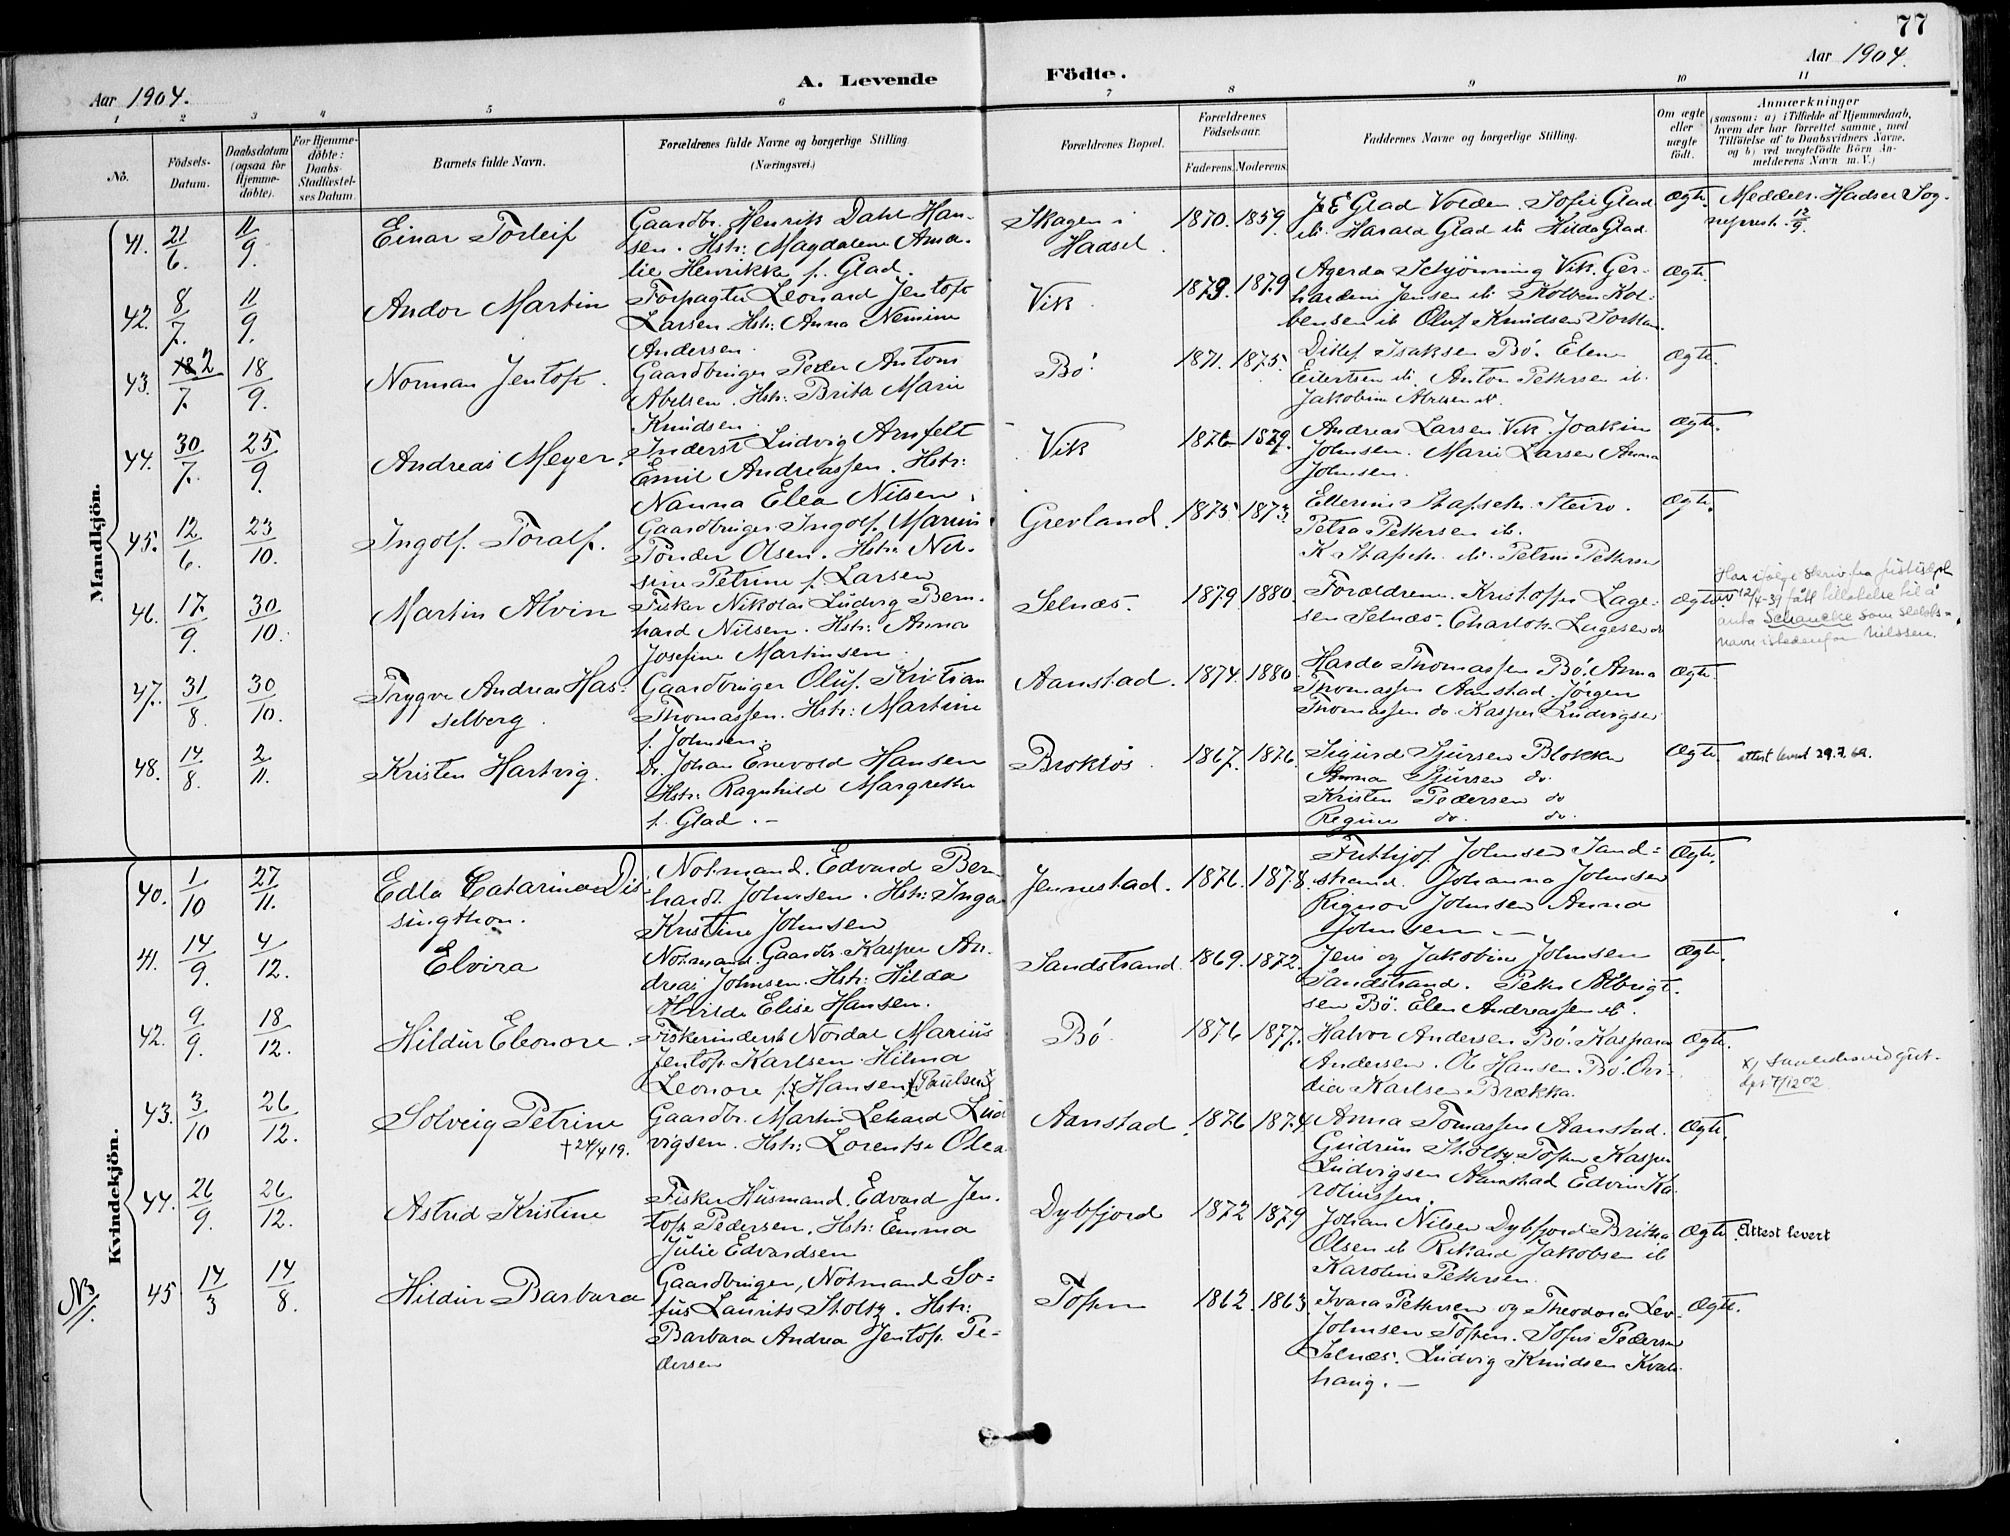 77
Aar 1904.
A. Levende
Födte.
Aar 1904.
1 2 3 4 5 6 7 8 9 10 11
No.
Födsels-Datum.
Daabsdatum (ogsaa for Hjemmedöbte).
For Hjemmedöbte: Daabs-Stadfæstelses Datum.
Barnets fulde Navn.
Forældrenes fulde Navne og borgerlige Stilling
(Næringsvei.)
Forældrenes Bopæl.
Forældrenes Födselsaar.
Faderens.
Moderens.
Faddernes Navne og borgerlige Stilling.
Om ægte eller uægte födt.
Anmærkninger
(saasom: a) i Tilfælde af Hjemmedaab, hvem der har forrettet samme, med Tilföielse af to Daabsvidners Navne, og b) ved uægtefödte Börn Anmelderens Navn m. V.)
Mandkjön.
41. 21/6. 11/9. Einar Torleif
Gaardbr. Henrik Dahl Han-
sen. Hstr: Magdalene Ama-
lie Henrikke f. Glad.
Skagen i
Hadsel.
1870. 1859.
J E Glad Volden. Sofie Glad
ib. Harald Glad ib Hilda Glad
Ægte.
Meddelt Hadsel Sog-
neprest. 12/9.
42. 8/7. 11/9. Andor Martin
Forpagter Leonard Jentoft
Larsen. Hstr: Anna Nemine
Andersen.
Vik
1873. 1879
Agerda Schjönning Vik. Ger-
hardine Jensen ib. Kolben Kol-
bensen ib Oluf Knudsen
Ægte.
43. 2/7. 18/9. Norman Jentoft.
Gaardbruger Peder Antoni
Abelsen. Hstr: Brita Marie
Knudsen.
Bö
1871. 1875.
Ditlef Isaksen Bö. Elen
Eilertsen ib. Anton Pettersen ib.
Jakobine Abelsen ib.
Ægte.
44. 30/7. 25/9. Andreas Meyer.
Inderst Ludvig Arnfelt
Emil Andreassen. Hstr:
Nanna Elea Nilsen.
Vik
1876 1879.
Andreas Larsen Vik. Joakim
Johnsen. Marie Larsen Anna
Johnsen.
Ægte.
45. 12/6. 23/10. Ingolf Toralf.
Gaardbruger Ingolf Marius
Tönder Olsen. Hstr: Nil-
sine Petrine f. Larsen
Grevland.
1875 1873.
Steiro.
Petra Pettersen ib.
Petrine Pettersen
Ægte.
46. 17/9. 30/10. Martin Alvin
Fisker Nikolai Ludvig Bern-
hard Nilsen. Hstr: Anna
Josefine Martinsen.
Selnæs.
1879 1880.
Forældrene. Kristoffer Lage-
sen Selnæs. Charlotte Lagesen do
Ægte
Har ifölge skriv fra Justisdept
av 12/4-39 fått tillatelse til å
anta Schancke som slekts-
navn istedenfor Nilssen.
47. 31/8. 30/10. Trygve Andreas Has-
selberg.
Gaardbruger Oluf Kristian
Thomassen. Hstr: Martine
f. Johnsen.
Aanstad.
1874. 1880
Harda Thomassen Bö. Anna
Thomassen Aanstad Jörgen
Thomassen do. Kasper Ludvigsen
Ægte
48. 14/8. 2/11. Kristen Hartvig.
Johan Enevold Hansen
Hstr: Ragnhild Margrethe
f. Glad. -
Broklös.
1867. 1876.
Sigurd Sjursen Blokken
Anna Sjursen do.
Kristen Pedersen do
Regine do. do.
Ægte.
attest levert 29.7.69.
Kvindekjön.
40. 1/10 27/11. Edla Catarina Dis-
singthon.
Notmand. Edvard Bern-
hardt Johnsen. Hstr: Inga
Kristine Johnsen
Jennestad.
1876. 1878.
Frithjof Johnsen Sand-
strand. Johanna Johnsen
Rignor Johnsen Anna
Johnsen. -
Ægte.
41. 14/9. 4/12. Elvira
Notmand. Gaardbr. Kasper An-
dreas Johnsen. Hstr: Hilda
Alvilde Elise Hansen.
Sandstrand.
1869. 1872.
Jens og Jakobine Johnsen
Sandstrand. Peter Albrigt-
sen Bö. Elen Andreassen ib.
Ægte.
42. 9/9. 18/12. Hildur Eleonore.
Fiskerinderst Nordal Marius
Jentoft Karlsen. Hilma
Leonore f. Hansen (Paulsen)
Bö
1876 1877.
Halvor Andersen Bö. Kaspara
Andersen. Ole Hansen Bö. Ovi-
dia Karlsen Brækka.
Ægte.
43. 3/10 26/12. Solveig Petrine
† 24/4 19.
Gaardbr. Martin Lehard Lud-
vigsen. Hstr: Lorentse Olea
Aanstad.
1876 1874
Anna Tomassen Aanstad.
Gudrun Stoltz Toften Kasper
Ludvigsen Aanstad Edvin Ka-
rolinssen.
Ægte.
44. 26/9. 26/12. Astrid Kristine
Fisker Husmand. Edvard Jen-
toft Pedersen. Hstr: Emma
Julie Edvardsen
Dybfjord
1872 1879
Johan Nilsen Dybfjord Britha
Olsen ib Rikard Jakobsen ib
Karoline Pettersen.
Ægte.
Attest levert
45 14/3 14/8. Hildur Barbara
Gaardbruger, Notmand So-
fus Laurits Stoltz. Hstr:
Barbara Andrea Jentoft Pe-
dersen
Toften
1862. 1863
Ivara Pettersen og Theodora Lev-
Johnsen Toften. Sofus Pedersen
Selnæs. Ludvig Knudsen Kval-
haug. -
Ægte.